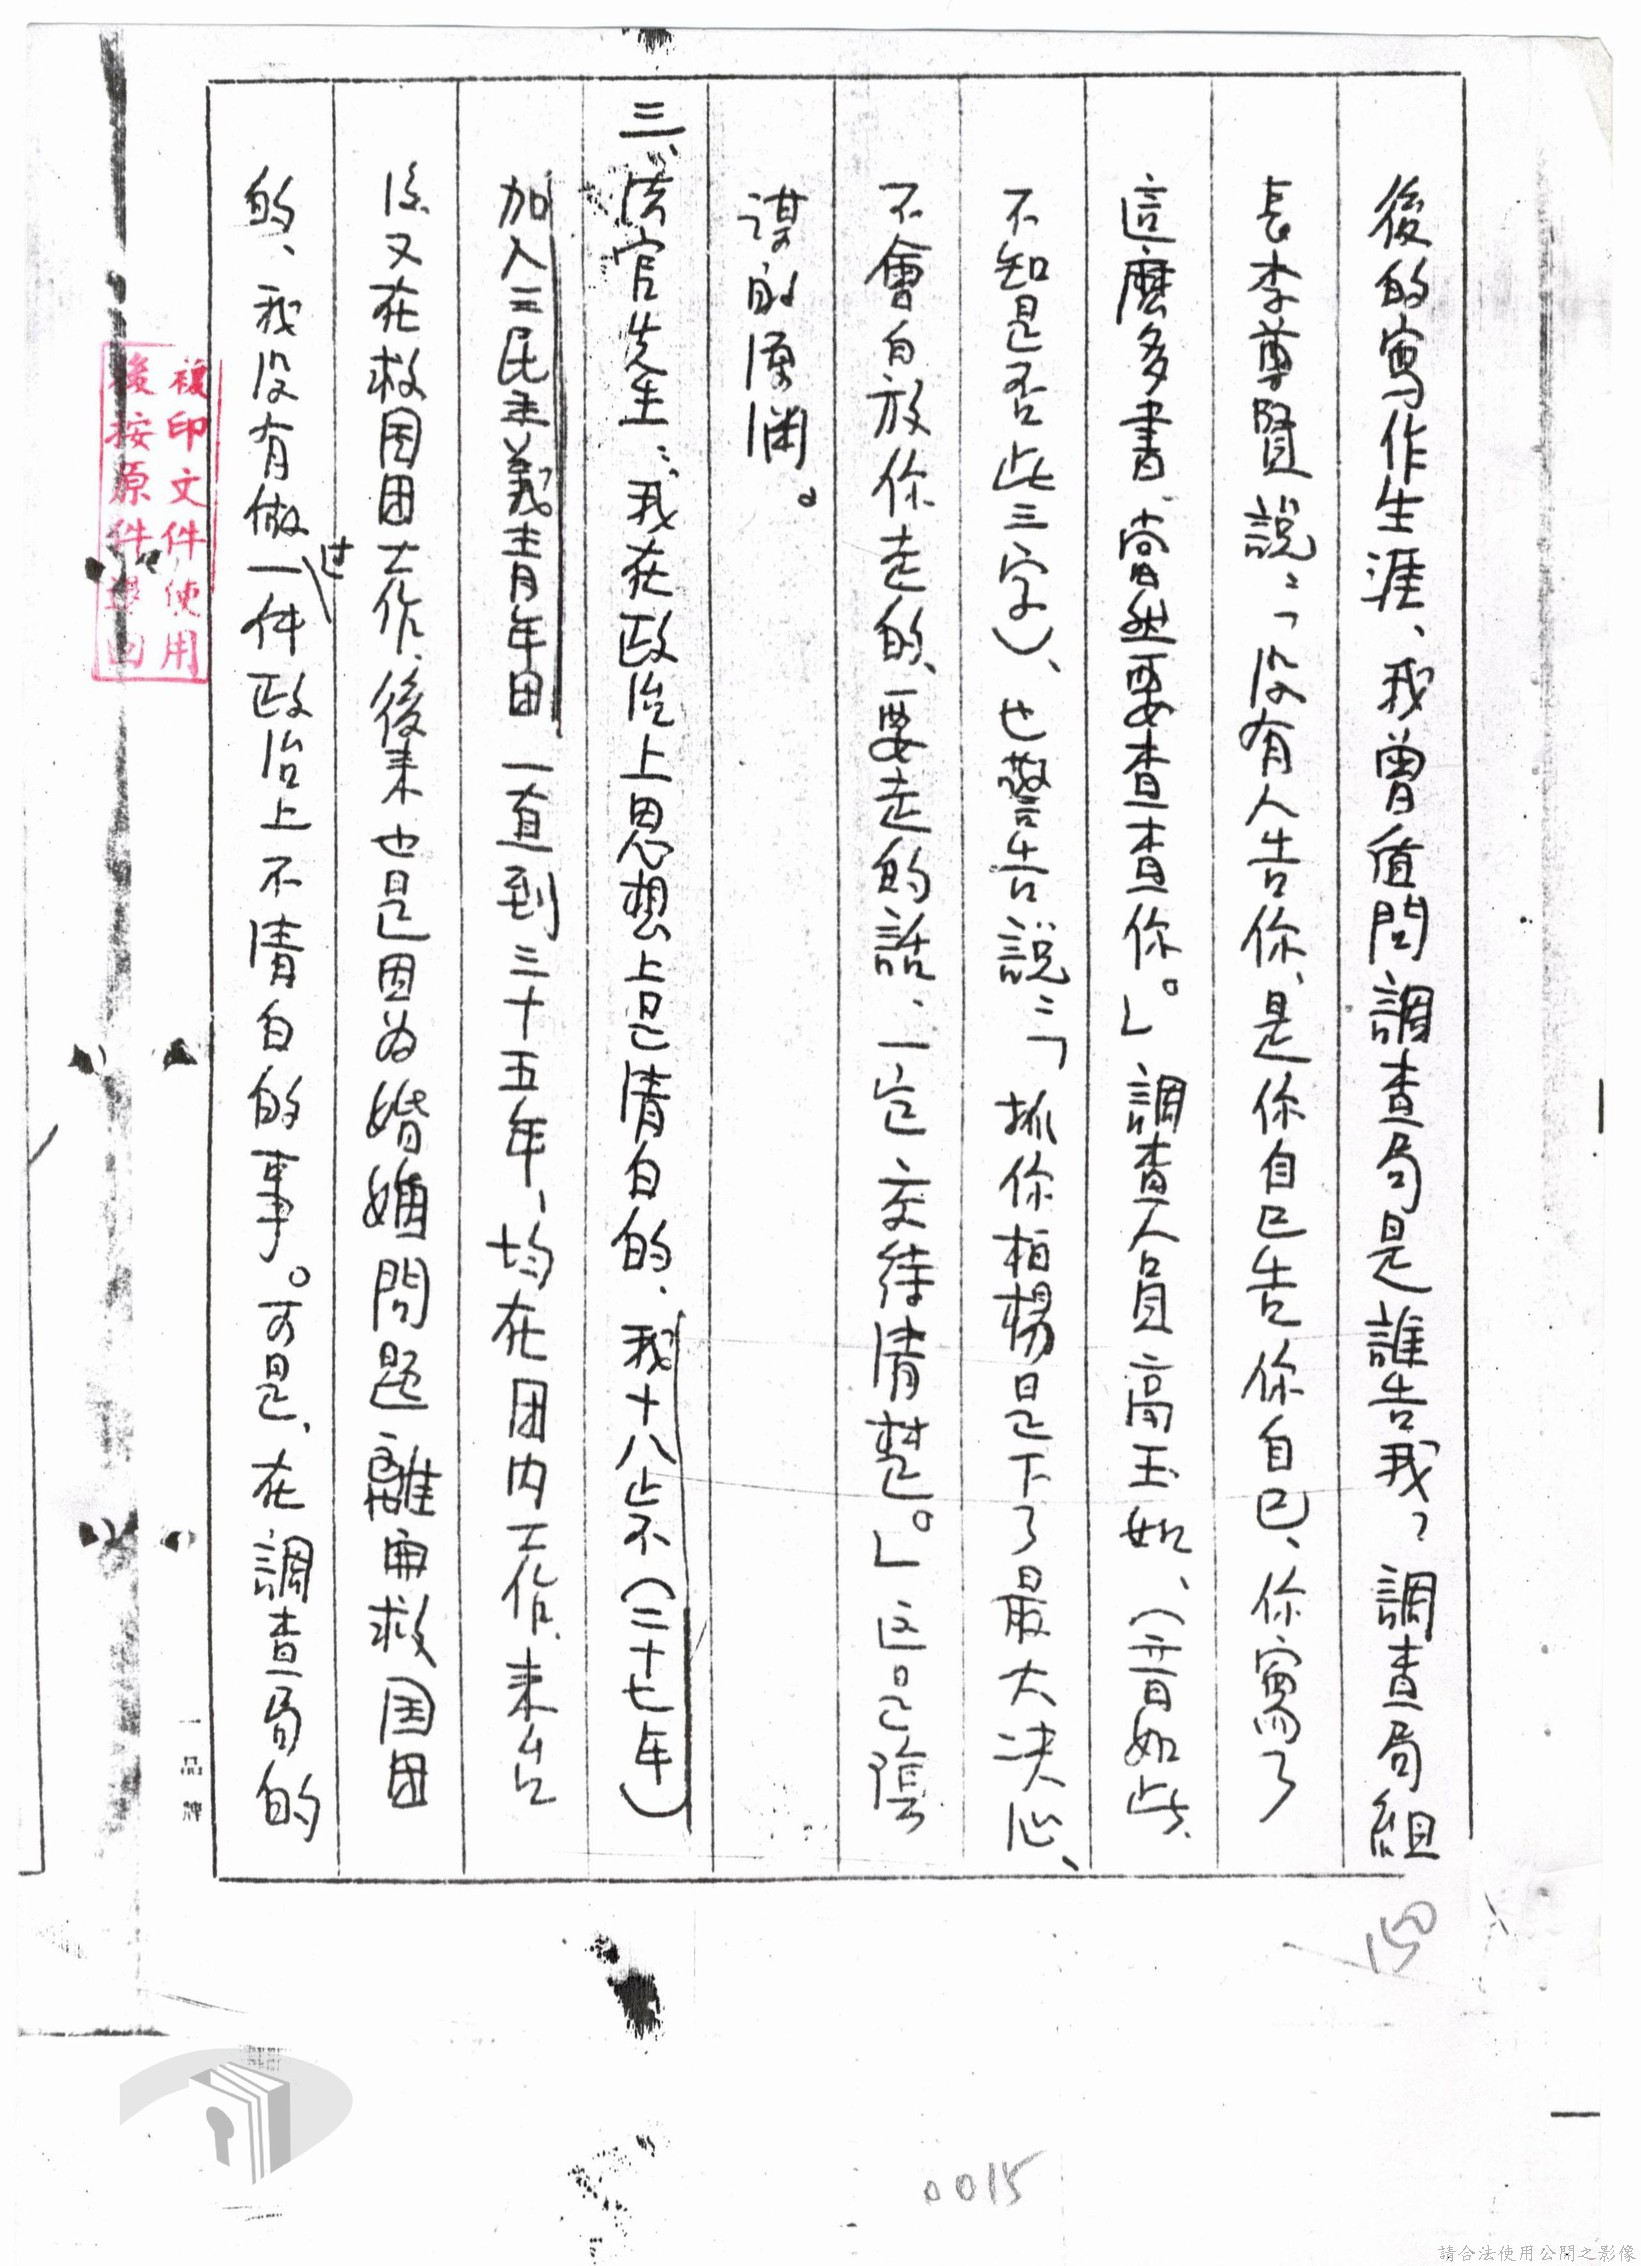 後的寫作生涯、我曾盾問調查局是誰告我？調查局組
長李尊賢說：「沒有人告你、是你自己告你自己、你寫了
這麼多書、当然要查查你。」調查人員高玉如、（音如此、
不知是否此三字）、也警告說：「抓你柏楊是下了最大决心、
不會白放你走的、要走的話、一定交待清楚。」这是陰
謀的源渊。
三、法官先生：我在政治上思想上是清白的、我十八歲（二十七年）
加入三民主義青年团一直到三十五年、均在团内工作、来台
后又在救国团工作、後来也是因为婚姻問題離開救国团
的、我没有做过一件政治上不清白的事。可是、在調查局的
複印文件使用
後按原件退回
一品牌
150
0015
請合法使用公開之影像